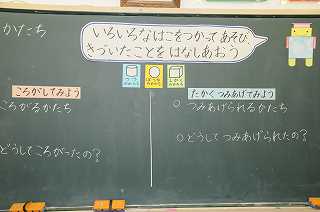 かたち
いろいろなはこをつかって あそび、
きづいたことを はなしあおう
ころがしてみよう
ころがるかたち
どうしてころがったの?
たかくつみあげてみよう
○ つみあげられるかたち
○どうして つみあげられたの?